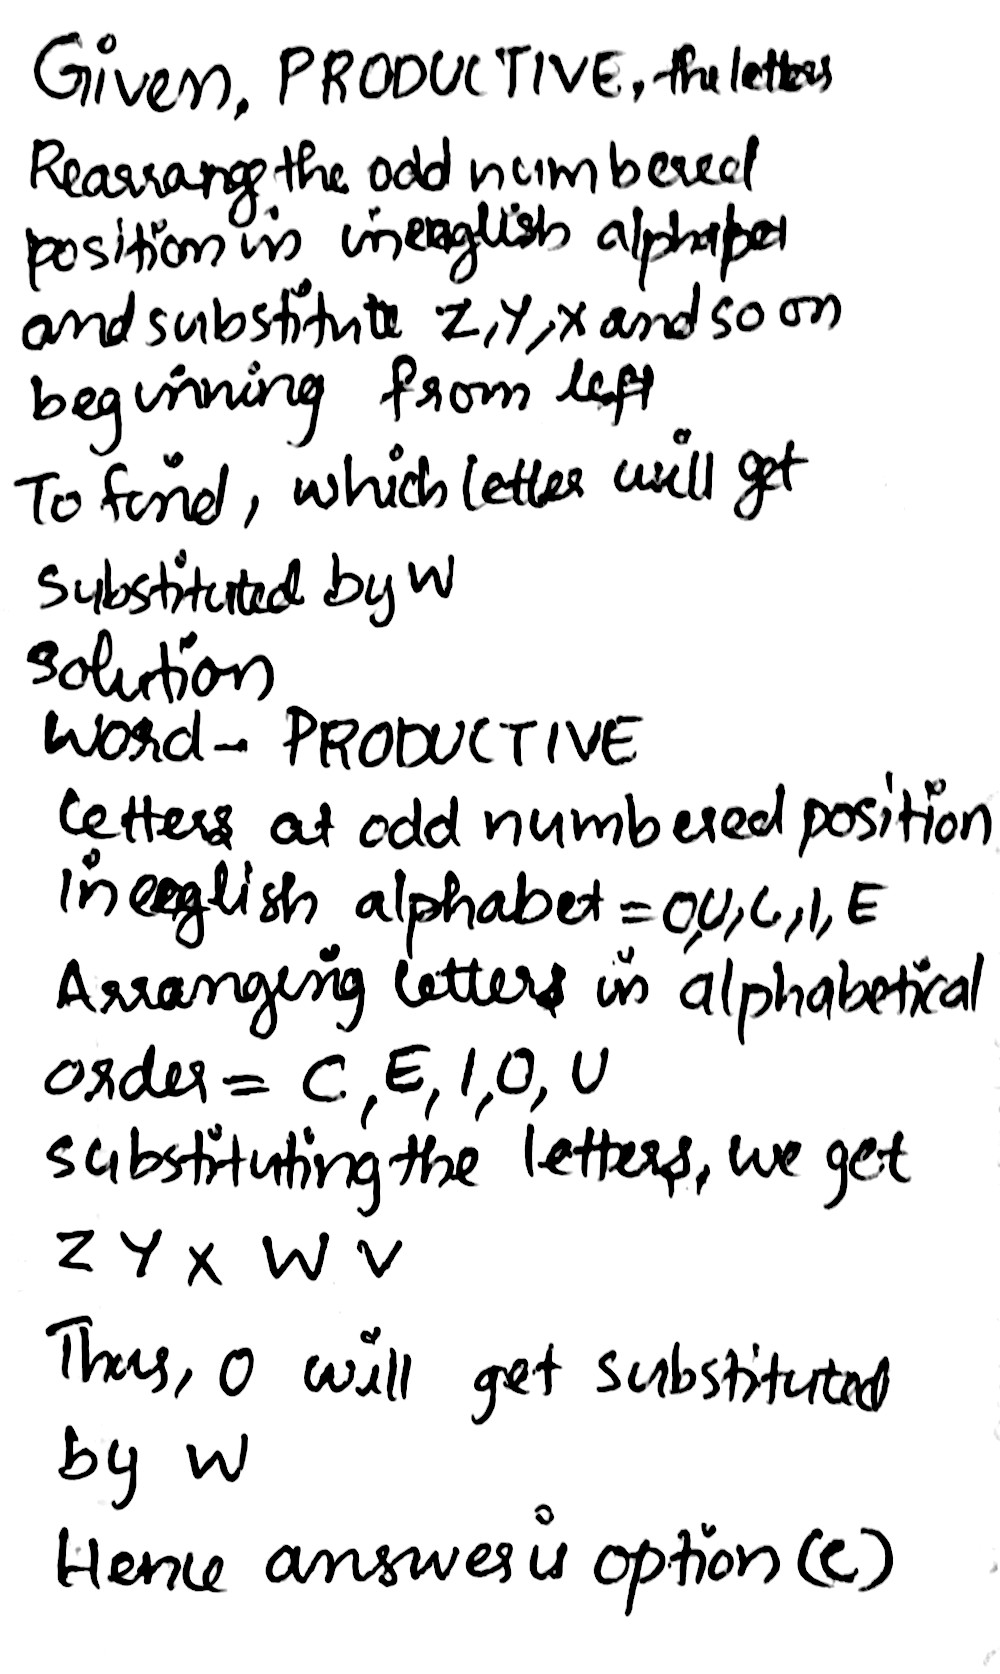 Given, PRODUCTIVE, the letters
Rearrange the odd numbered
position in in english alphabet
and substitute Z, Y, X and so on
beginning from left
To find, which letter will get
substituted by W
Solution
Word - PRODUCTIVE
letters at odd numbered position
in english alphabet = O, U, C, I, E
Arranging letters in alphabetical
order = C, E, I, O, U
substituting the letters, we get
Z Y X W V
Thus, O will get substituted
by W
Hence answer is option (C)